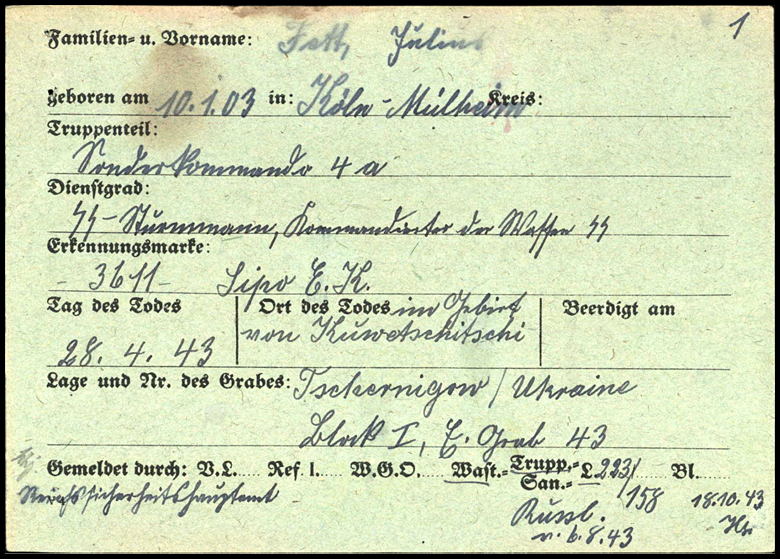 1
Familien- u. Vorname: Fett, Julius
geboren am 10.1.03 in: Köln-Mülheim Kreis:
Truppenteil:
Sonderkommando 4a
Dienstgrad:
SS-Sturmmann, Kommandierter der Waffen SS
Erkennungsmarke:
- 3611 - Sipo E.K.
Tag des Todes Ort des Todes im Gebiet Beerdigt am
28. 4. 43 von Kuwetschitschi
Lage und Nr. des Grabes: Tschernigow / Ukraine
Block I, E. Grab 43
Gemeldet durch: V.L. Ref 1. W.G.O. Wast.- Trupp.- San.- L 223/ Bl.
Reichssicherheitshauptamt 158 18.10.43
Russl.
v. 6.8.43